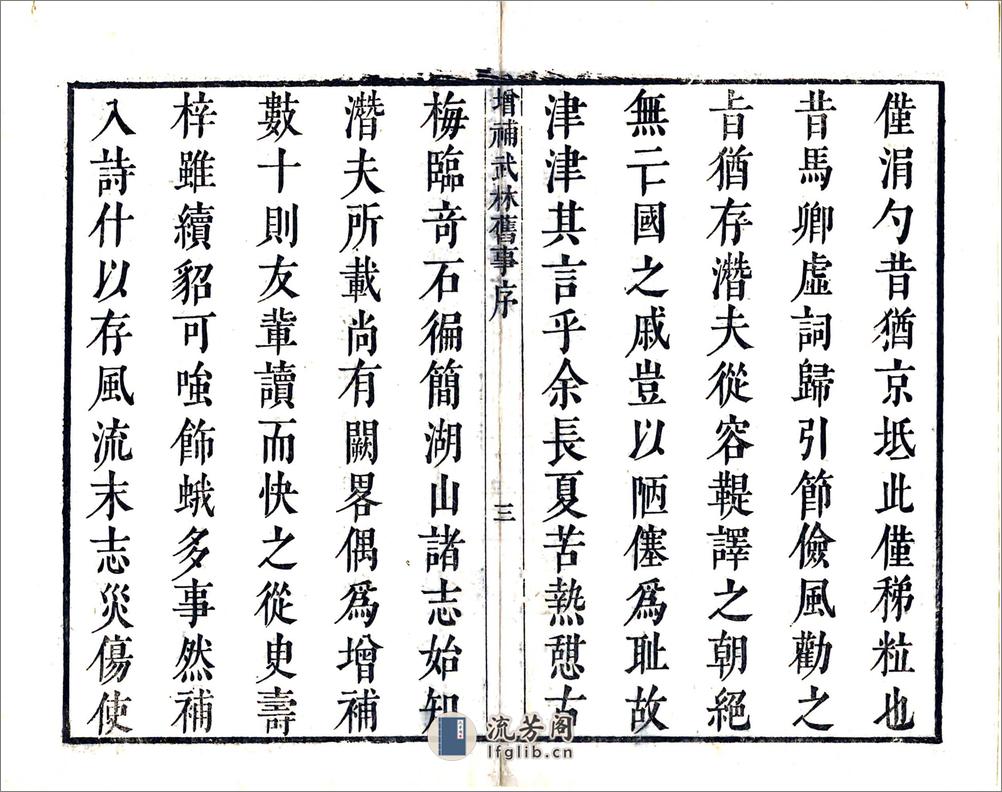 僅涓勺昔猶京坻此僅稊粒也
昔馬卿虛詞歸引節儉風勸之
㫖猶存濳夫從容鞮譯之朝絕
無亡國之戚豈以陋僿爲耻故
津津其言乎余長夏苦熱憇古
增補武林舊事序
三
梅臨竒石徧簡湖山諸志始知
濳夫所載尚有闕畧偶爲增補
數十則友軰讀而快之從史壽
梓雖續貂可嗤飾蛾多事然補
入詩什以存風流末志災傷使
流芳阁
lfglib.cn